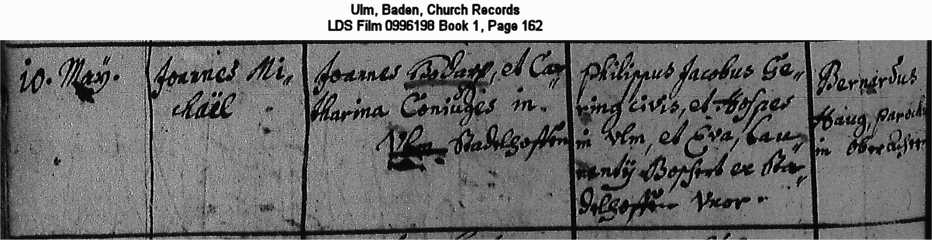 Ulm, Baden, Church Records
LDS Film 0996198 Book 1, Page 162
10. Maÿ.
Joannes Mi-
chaël
Joannes et Ca-
tharina Coniuges in
Ulm Stadelhoffen
Philippus Jacobus Ge-
ring civis, et Hospes
in Ulm, et Eva, Lau-
rentÿ ex Sta-
delhoffen Uxor.
Bernardus
Haug, paroch
in Oberacher